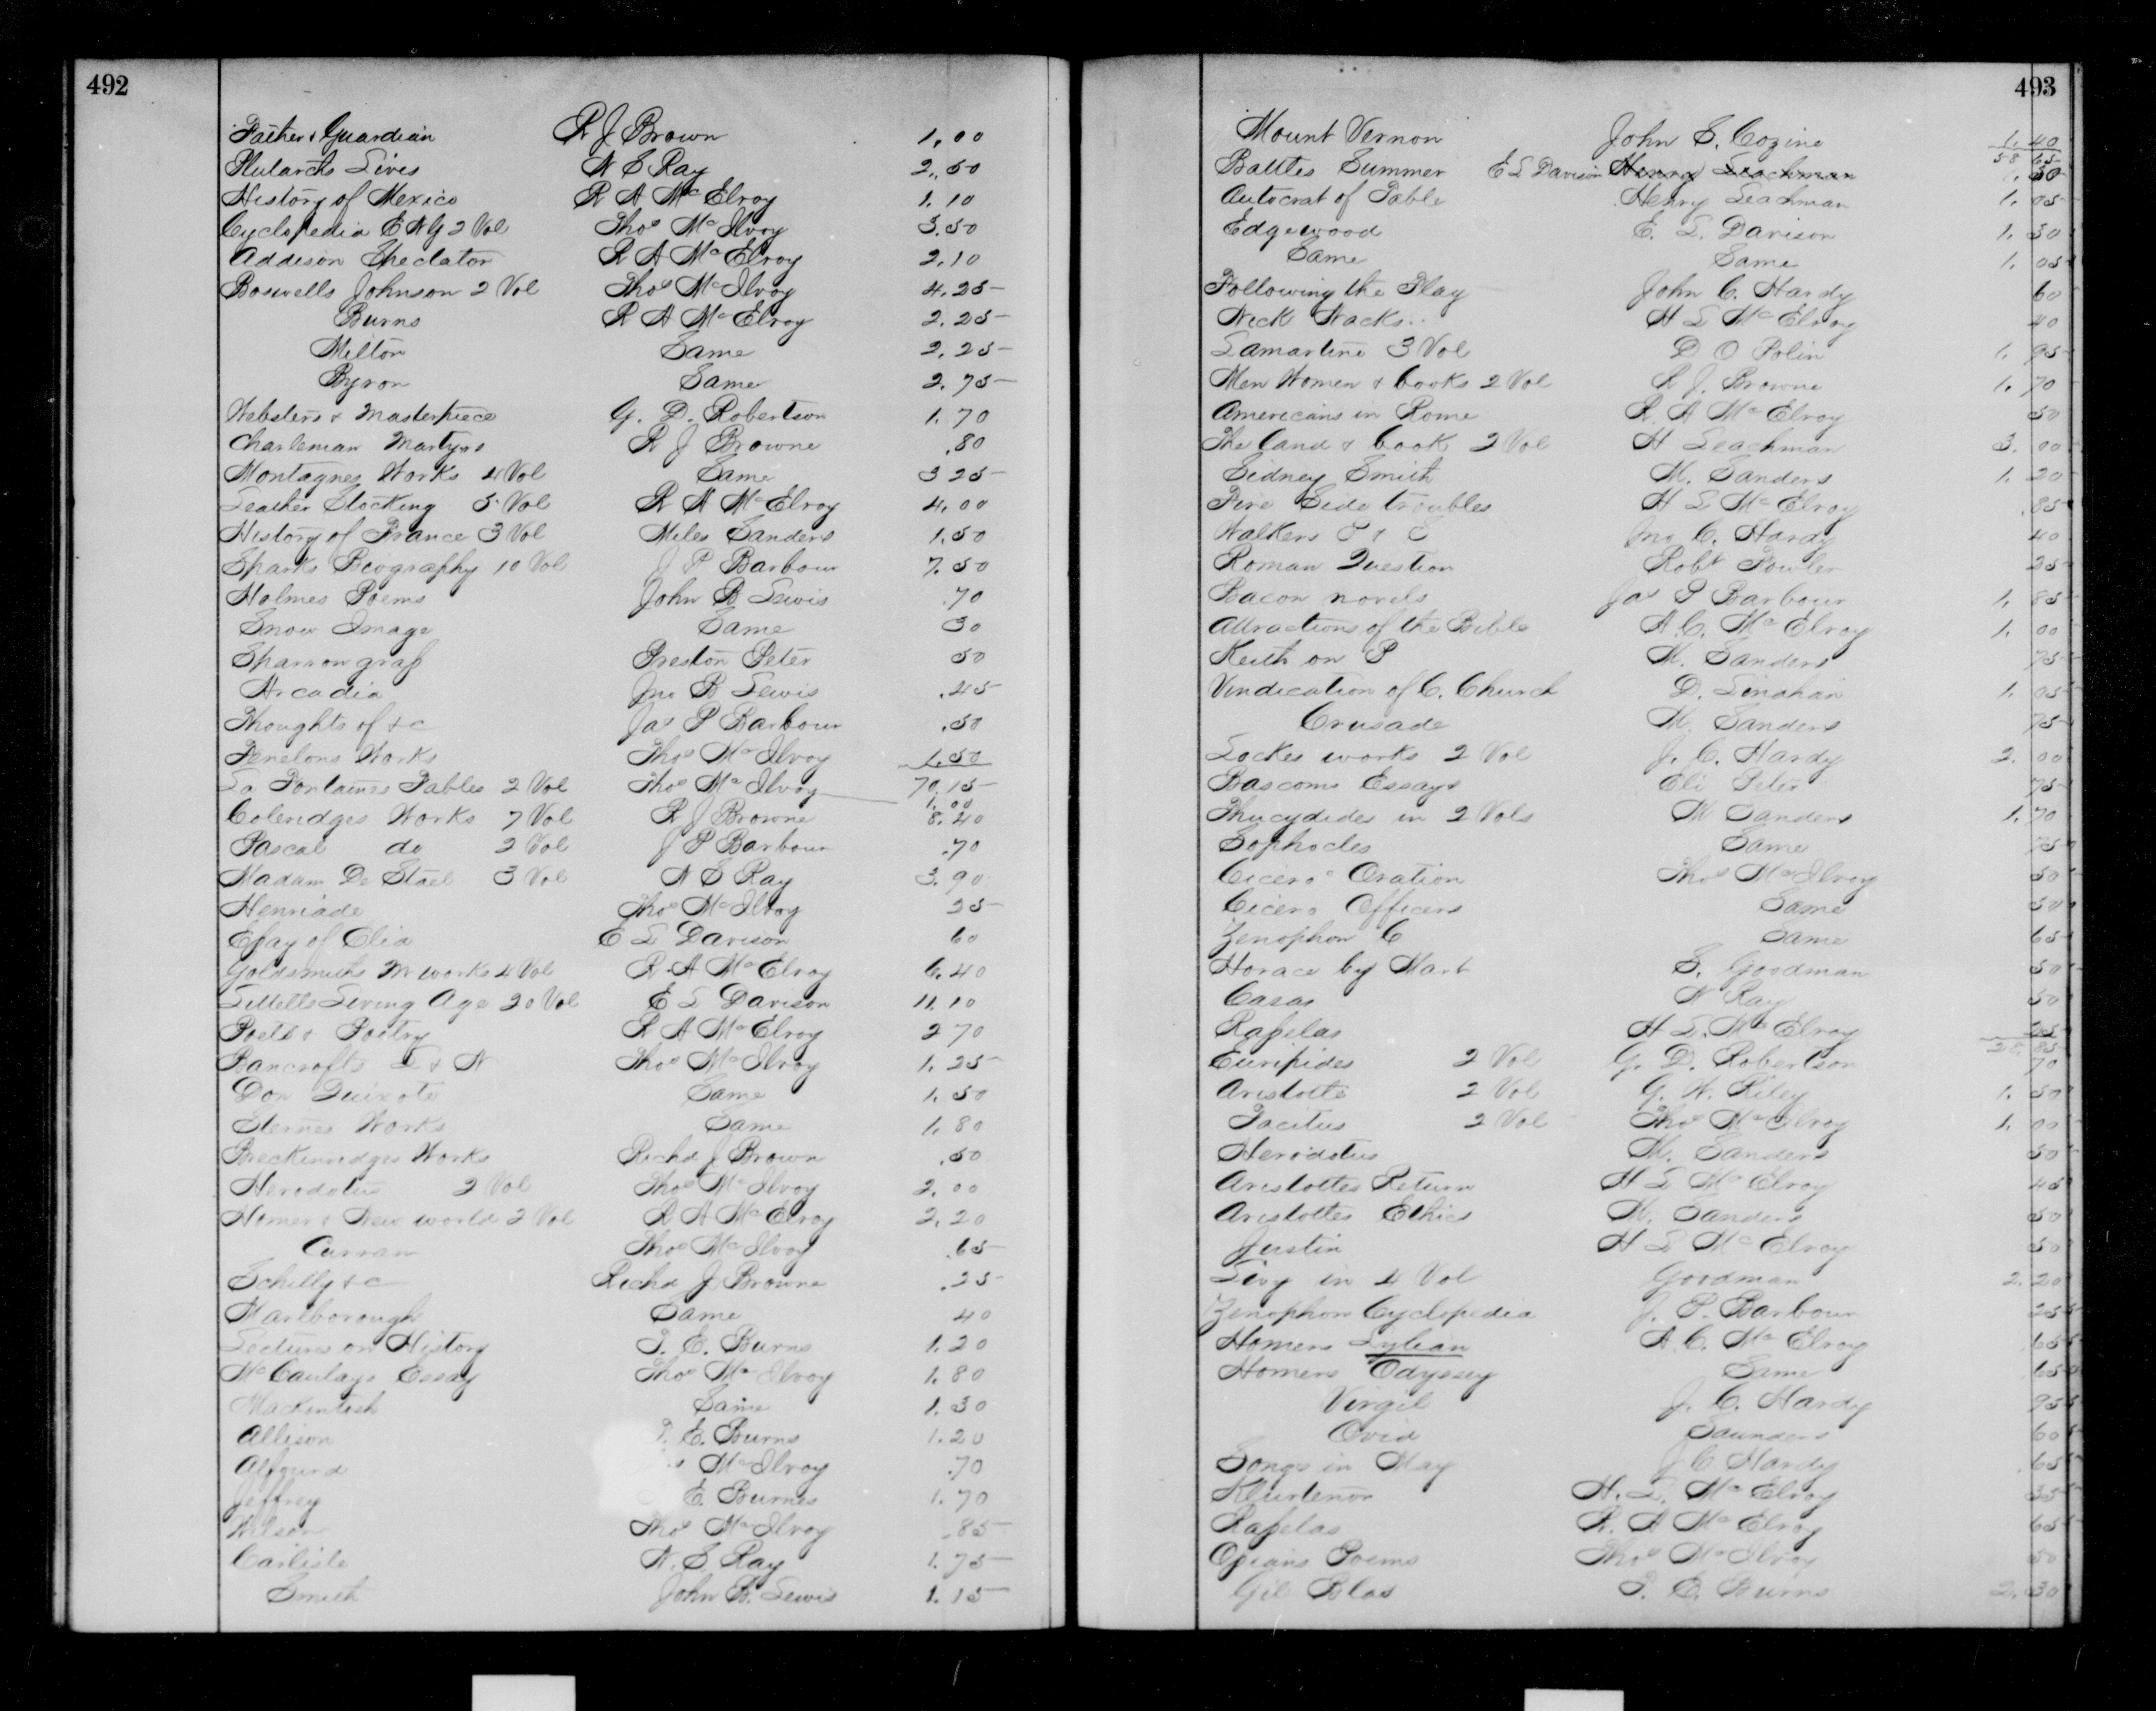 492
Father & Guardian R J Brown 1.00
Plutarchs Lives N S Ray 2.50
History of Mexico R A McElroy 1.10
Cyclopedia E N G 2 Vol Thos McIlvoy 3.50
Addison Spectator R A McElroy 2.10
Boswells Johnson 2 Vol Thos McIlvoy 4.25
Burns R A McElroy 2.25
Milton Same 2.25
Byron Same 2.75
Websters & Masterpiece G. D. Robertson 1.70
Charleman Martyrs R J Browne .80
Montagnes Works 4 Vol Same 3 25
Leather Stocking 5 Vol R A McElroy 4.00
History of France 3 Vol Miles Sanders 1.50
Sparks Biography 10 Vol J P Barbour 7.50
Holmes Poems John B Lewis .70
Snow Image Same 30
Sparrowgraf Preston Peter 50
Arcadia Jno B Lewis .45
Thoughts of &c Jas P Barbour .50
Fenelons Works Thos McIlvoy 1.50
70.15
La Fontaines Fables 2 Vol Thos McIlvoy 1.00
Coleridges Works 7 Vol R J Browne 8.40
Pascal do 2 Vol J P Barbour .70
Madam De Stael 3 Vol N S Ray 3.90
Henriade Thos McIlvoy 25
Essay of Elia E L Davison 60
Goldsmiths M works 4 Vol R A McElroy 6.40
Littells Living Age 20 Vol E L Davison 11.10
Poets & Poetry R A McElroy 2 70
Bancrofts L & N Thos McIlvoy 1.25
Don Quixote Same 1.50
Sternes Works Same 1.80
Breckenridges Works Richd J Brown .50
Herodotus 2 Vol Thos McIlvoy 2.00
Homes & New world 2 Vol R A McElroy 2.20
Curran Thos McIlvoy .65
Schilly &c Richd J Browne .25
Marlborough Same 40
Lectures on History T. E. Burns 1.20
McCaulays Essay Thos McIlvoy 1.80
Mackintosh Same 1.30
Allison T. E. Burns 1.20
Alfourd McIlvoy .70
Jeffrey E. Burnes 1.70
Wilson Thos McIlvoy .85
Carlisle N. S Ray 1.75
Smith John B. Lewis 1.15
493
Mount Vernon John S. Cozine 1.40
58 65
Battles Summer E L Davison Henry Leachman .50
Autocrat of Table Henry Leachman 1.05
Edgewood E. L. Davison 1.30
Same Same 1.05
Following the Flag John C. Hardy 60
Nick Nacks H L McElroy 40
Lamartine 3 Vol D O Polin 1.95
Men Women & books 2 Vol R J. Browne 1.70
Americans in Rome R. A McElroy 50
The Land & book 2 Vol H Leachman 3.00
Sidney Smith M. Sanders 1.20
Fire Side troubles H L McElroy .85
Walkers Jno C. Hardy 40
Roman Question Robt Fowler 25
Bacon novels Jas P Barbour 1.85
Attractions of the Bible A. C. McElroy 1.00
Keith on P M. Sanders 75
Vindication of C. Church D. Linahan 1.05
Crusade M. Sanders 75
Lockes works 2 Vol J. C. Hardy 2.00
Bascoms Essays Eli Peter 75
Thucydides in 2 Vols M Sanders 1.70
Sophocles Same 75
Ciceros Oration Thos McIlvoy 50
Cicero Officers Same 50
Zenophon C Same 65
Horace by Mart S. Goodman 50
Casar N Ray 50
Rasselas H L. McElroy 25
28.85
Euripides 2 Vol G. D. Robertson 70
Aristotle 2 Vol G. W. Riley 1.50
Tacitus 2 Vol Thos McIlvoy 1.00
Herodotus M. Sanders 50
Aristotles Return H L McElroy 45
Aristotles Ethics M. Sanders 50
Justin H L McElroy 50
Livy in 4 Vol Goodman 2.20
Zenophon Cyclopedia J. P. Barbour 25
Homers Lylian A. C. McElroy .65
Homers Odyssey Same 65
Virgil J. C. Hardy 95
Ovid Saunders 60
Songs in May J C Hardy .65
H. L. McElroy 35
Rasselas R. A McElroy 65
Poems Thos McIlvoy 50
Gil Blas T. E. Burns 2.30